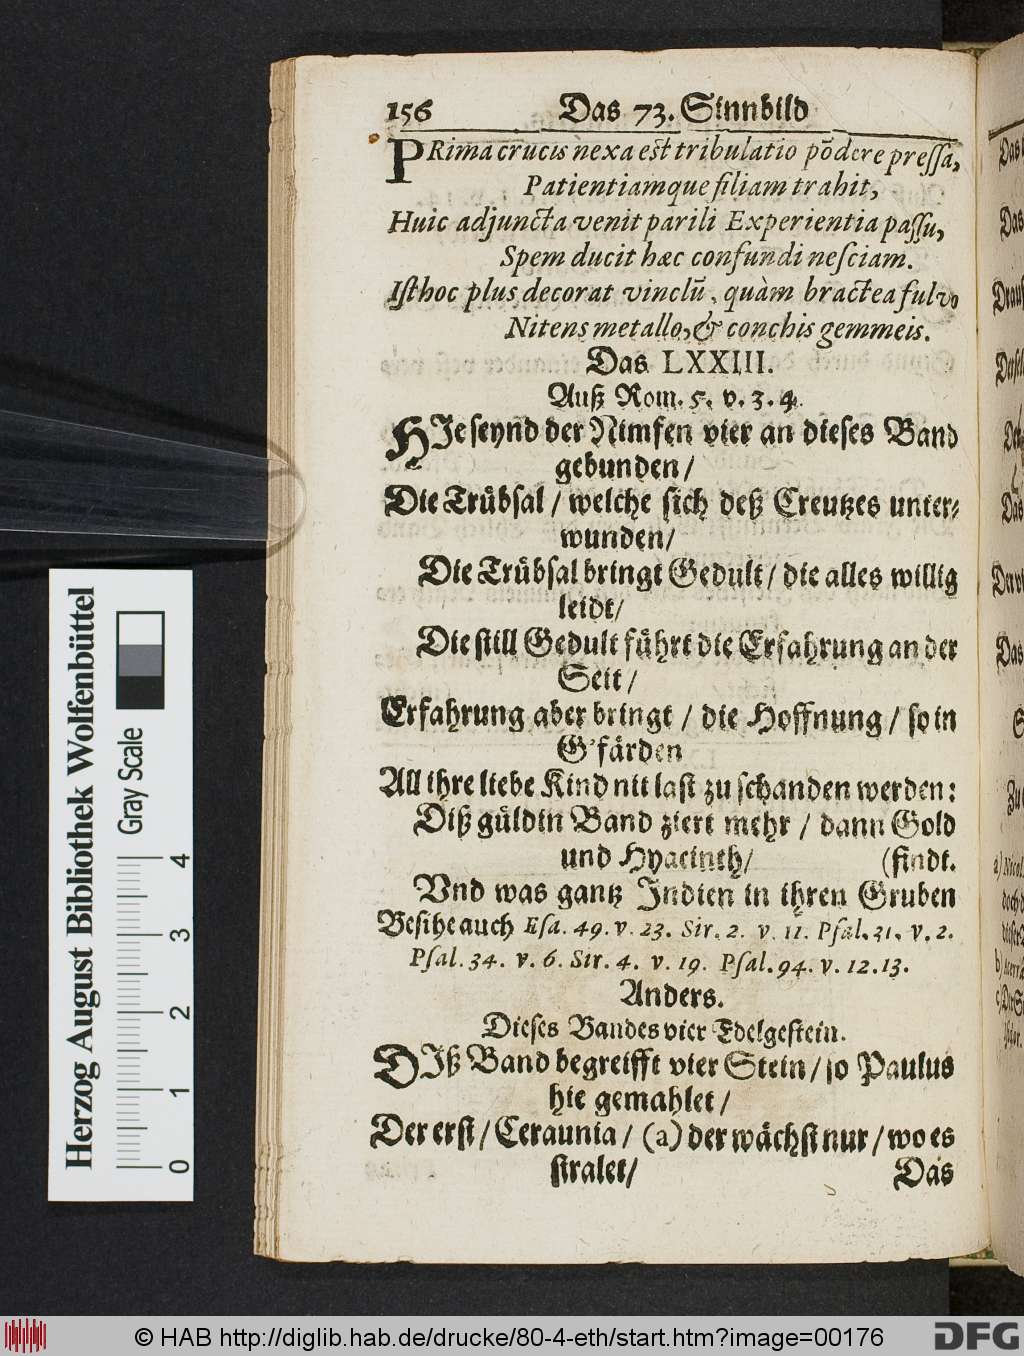 156 Das 73. Sinnbild
PRima crucis nexa est tribulatio põdere pressa,
Patientiamque filiam trahit,
Huic adjuncta venit parili Experientia passu,
Spem ducit hæc confundi nesciam.
Isthoc plus decorat vinclũ, quàm bractea fulvo
Nitens metallo, & conchis gemmeis.
Das LXXIII.
Auß Rom. 5. v. 3. 4.
HIe seynd der Nimfen vier an dieses Band
gebunden/
Die Trübsal / welche sich deß Creutzes unter-
wunden/
Die Trübsal bringt Gedult/ die alles willig
leidt/
Die still Gedult führt die Erfahrung an der
Seit/
Erfahrung aber bringt / die Hoffnung / so in
G'färden
All ihre liebe Kind nit last zu schanden werden:
Diß güldin Band ziert mehr / dann Gold
und Hyacinth/ (findt.
Vnd was gantz Indien in ihren Gruben
Besihe auch Esa. 49. v. 23. Sir. 2. v. 11. Psal. 31. v. 2.
Psal. 34. v. 6. Sir. 4. v. 19. Psal. 94. v. 12. 13.
Anders.
Dieses Bandes vier Edelgestein.
DIß Band begreifft vier Stein/ so Paulus
hie gemahlet/
Der erst/ Ceraunia/ (a) der wächst nur/ wo es
stralet/ Das
Herzog August Bibliothek Wolfenbüttel
Gray Scale
0 1 2 3 4
© HAB http://diglib.hab.de/drucke/80-4-eth/start.htm?image=00176
DFG